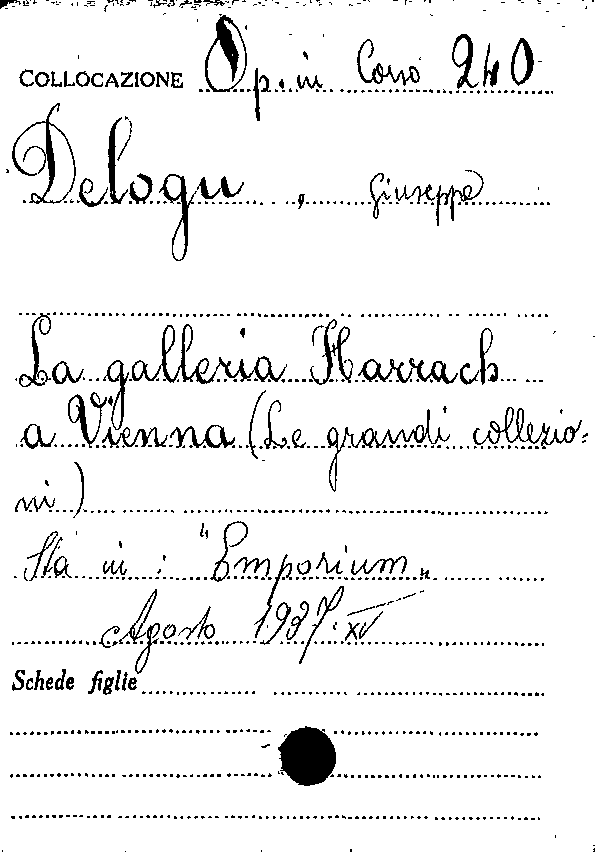 COLLOCAZIONE Op. in Corso 240
Delogu, Giuseppe
La galleria Harrach
a Vienna (Le grandi collezio-
ni)
Sta in: "Emporium"
Agosto 1937-XV
Schede figlie